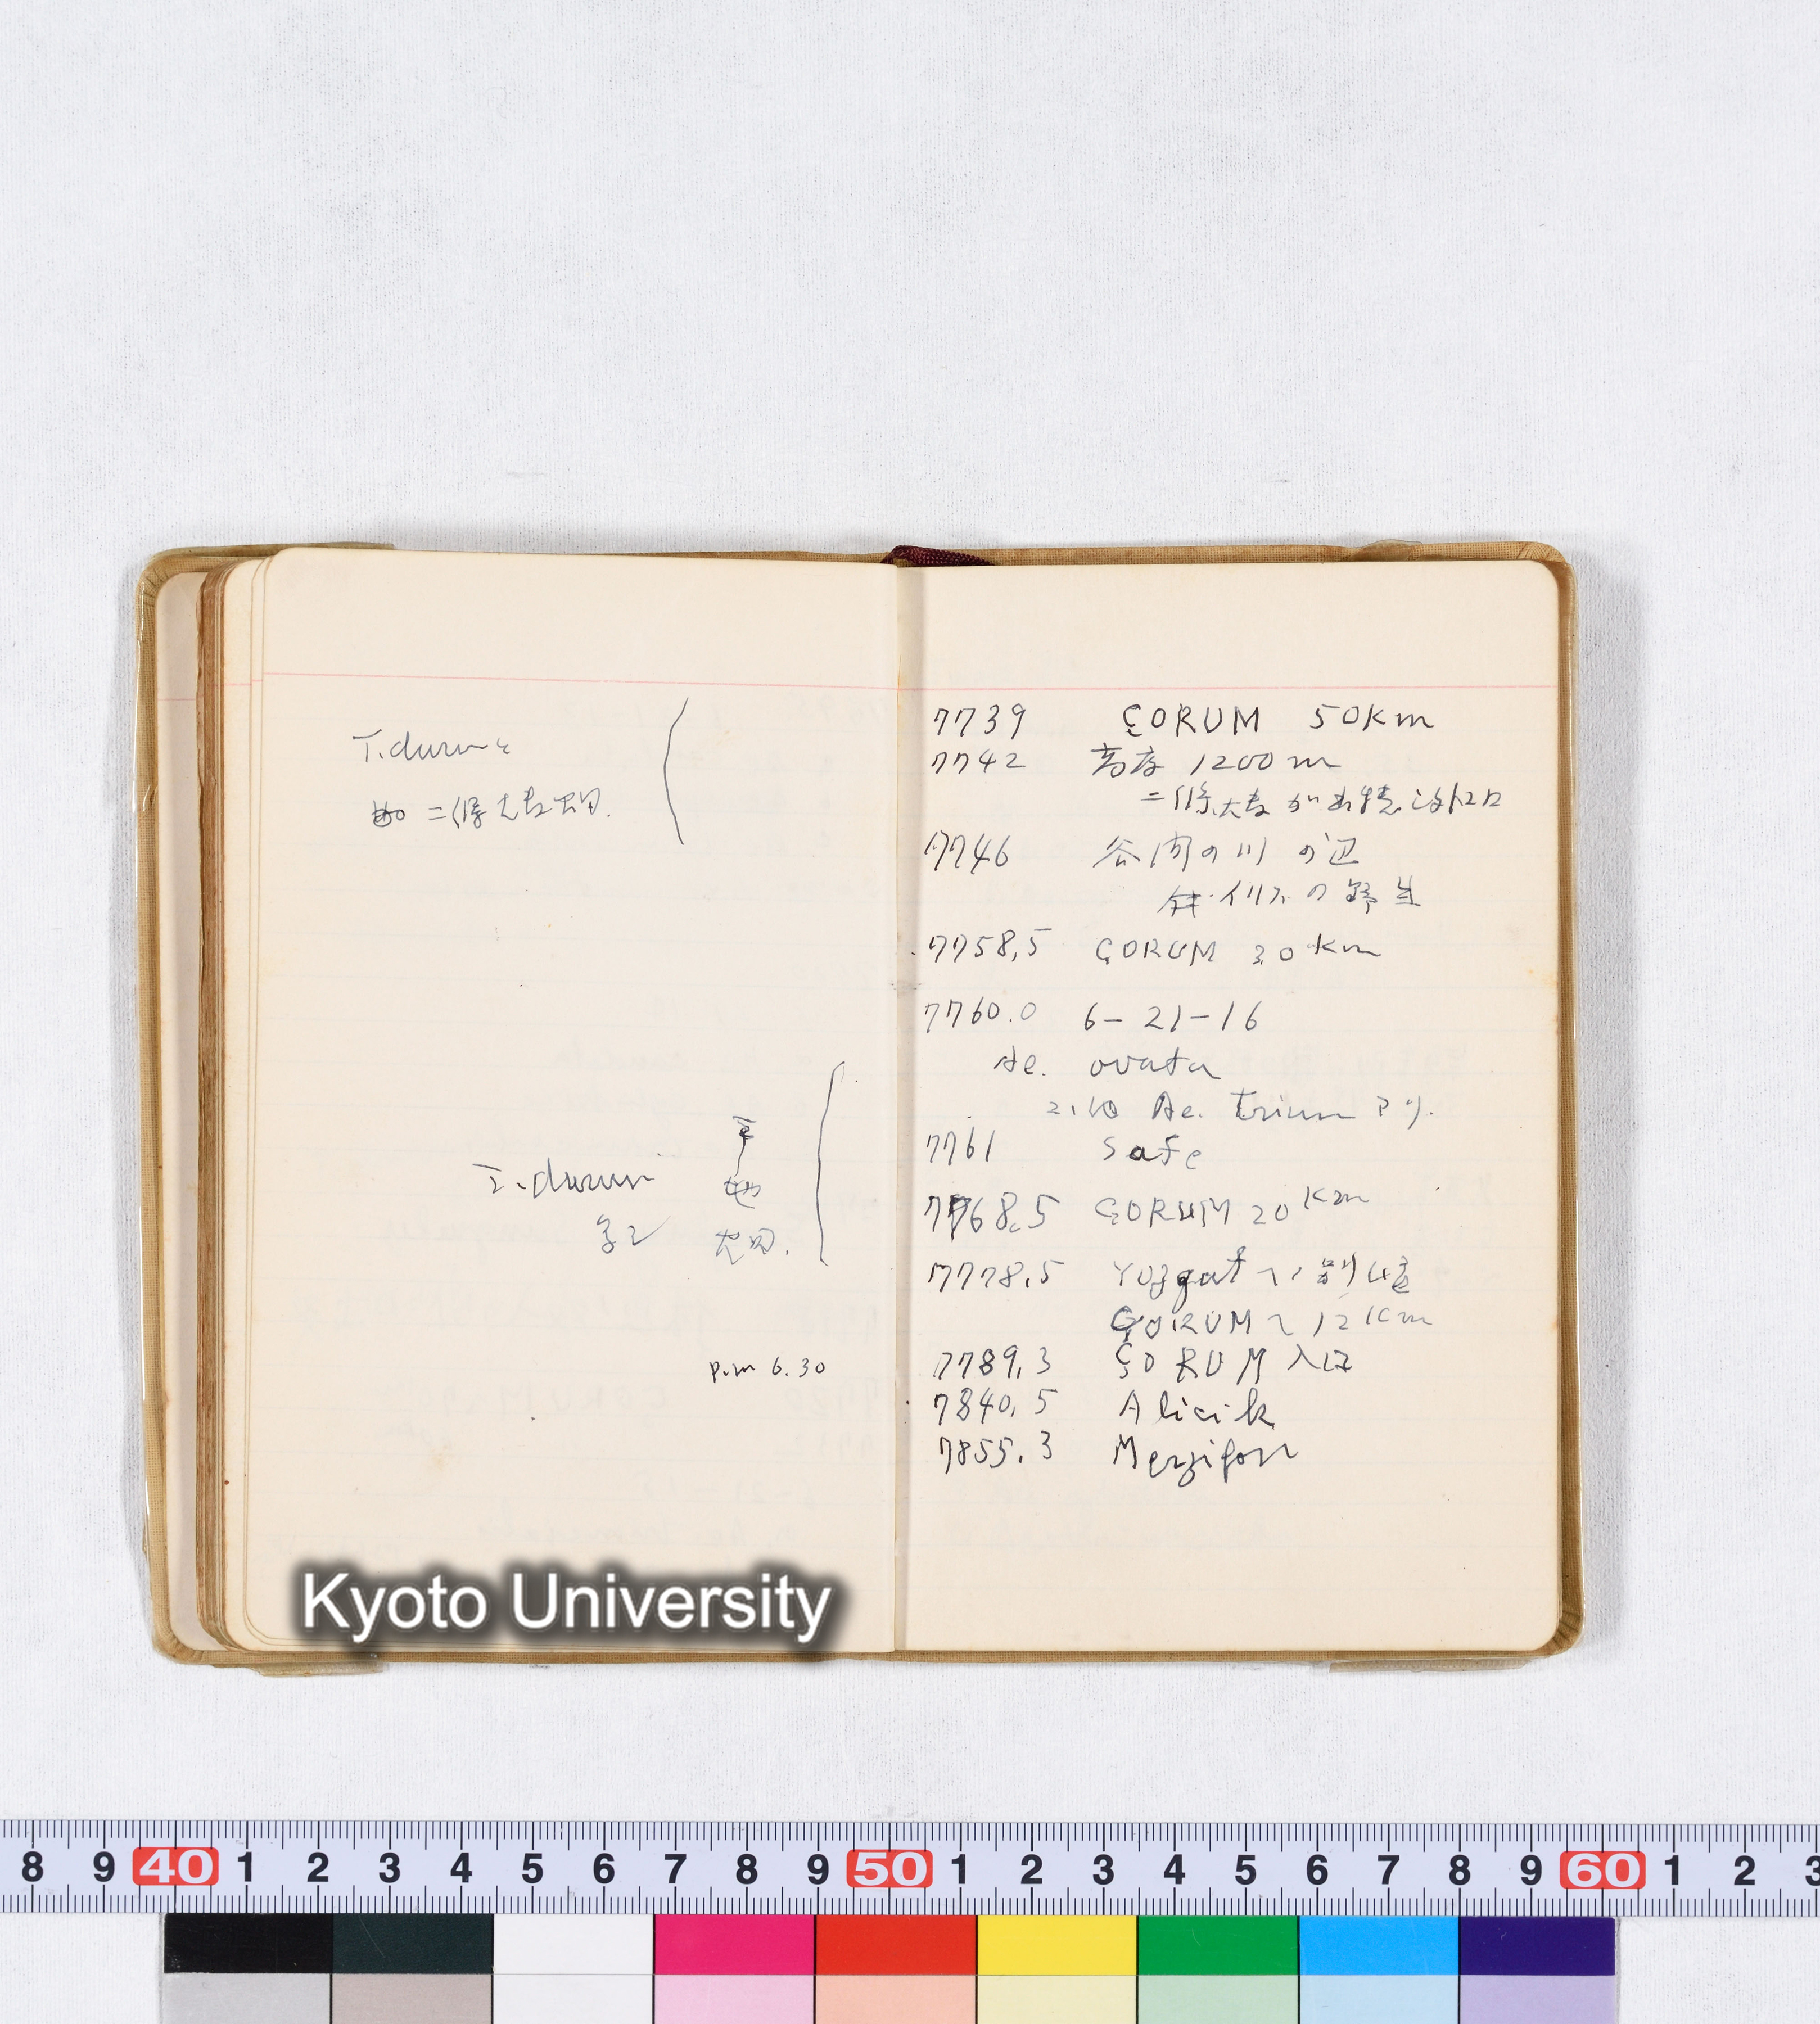 T. durum
二條大麦畑.
T. durum
畑
p.m 6.30
7739 ÇORUM 50Km
7742 高度 1200 m
二條大麦が
7746 谷間の川の辺
イリスの野生
7758,5 ÇORUM 30Km
7760.0 6-21-16
Ae. ovata
Ae. trium アリ.
7761 safe
7768,5 ÇORUM 20Km
7778,5 Yozgat へ 別レ道
ÇORUM へ 12Km
7789,3 ÇORUM 入口
7840,5 Alicik
7855.3 Merzifon
Kyoto University
8 9 40 1 2 3 4 5 6 7 8 9 50 1 2 3 4 5 6 7 8 9 60 1 2 3